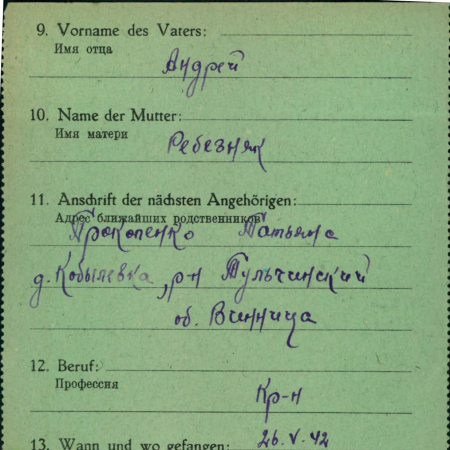 9. Vorname des Vaters:
Имя отца
Андрей
10. Name der Mutter:
Имя матери
Ребезняк
11. Anschrift der nächsten Angehörigen:
Адрес ближайших родственников
Прокопенко Татьяна
д. Кобылевка, р-н Тульчинский
об. Винница
12. Beruf:
Профессия
Кр-н
13. Wann und wo gefangen:
26.V.42